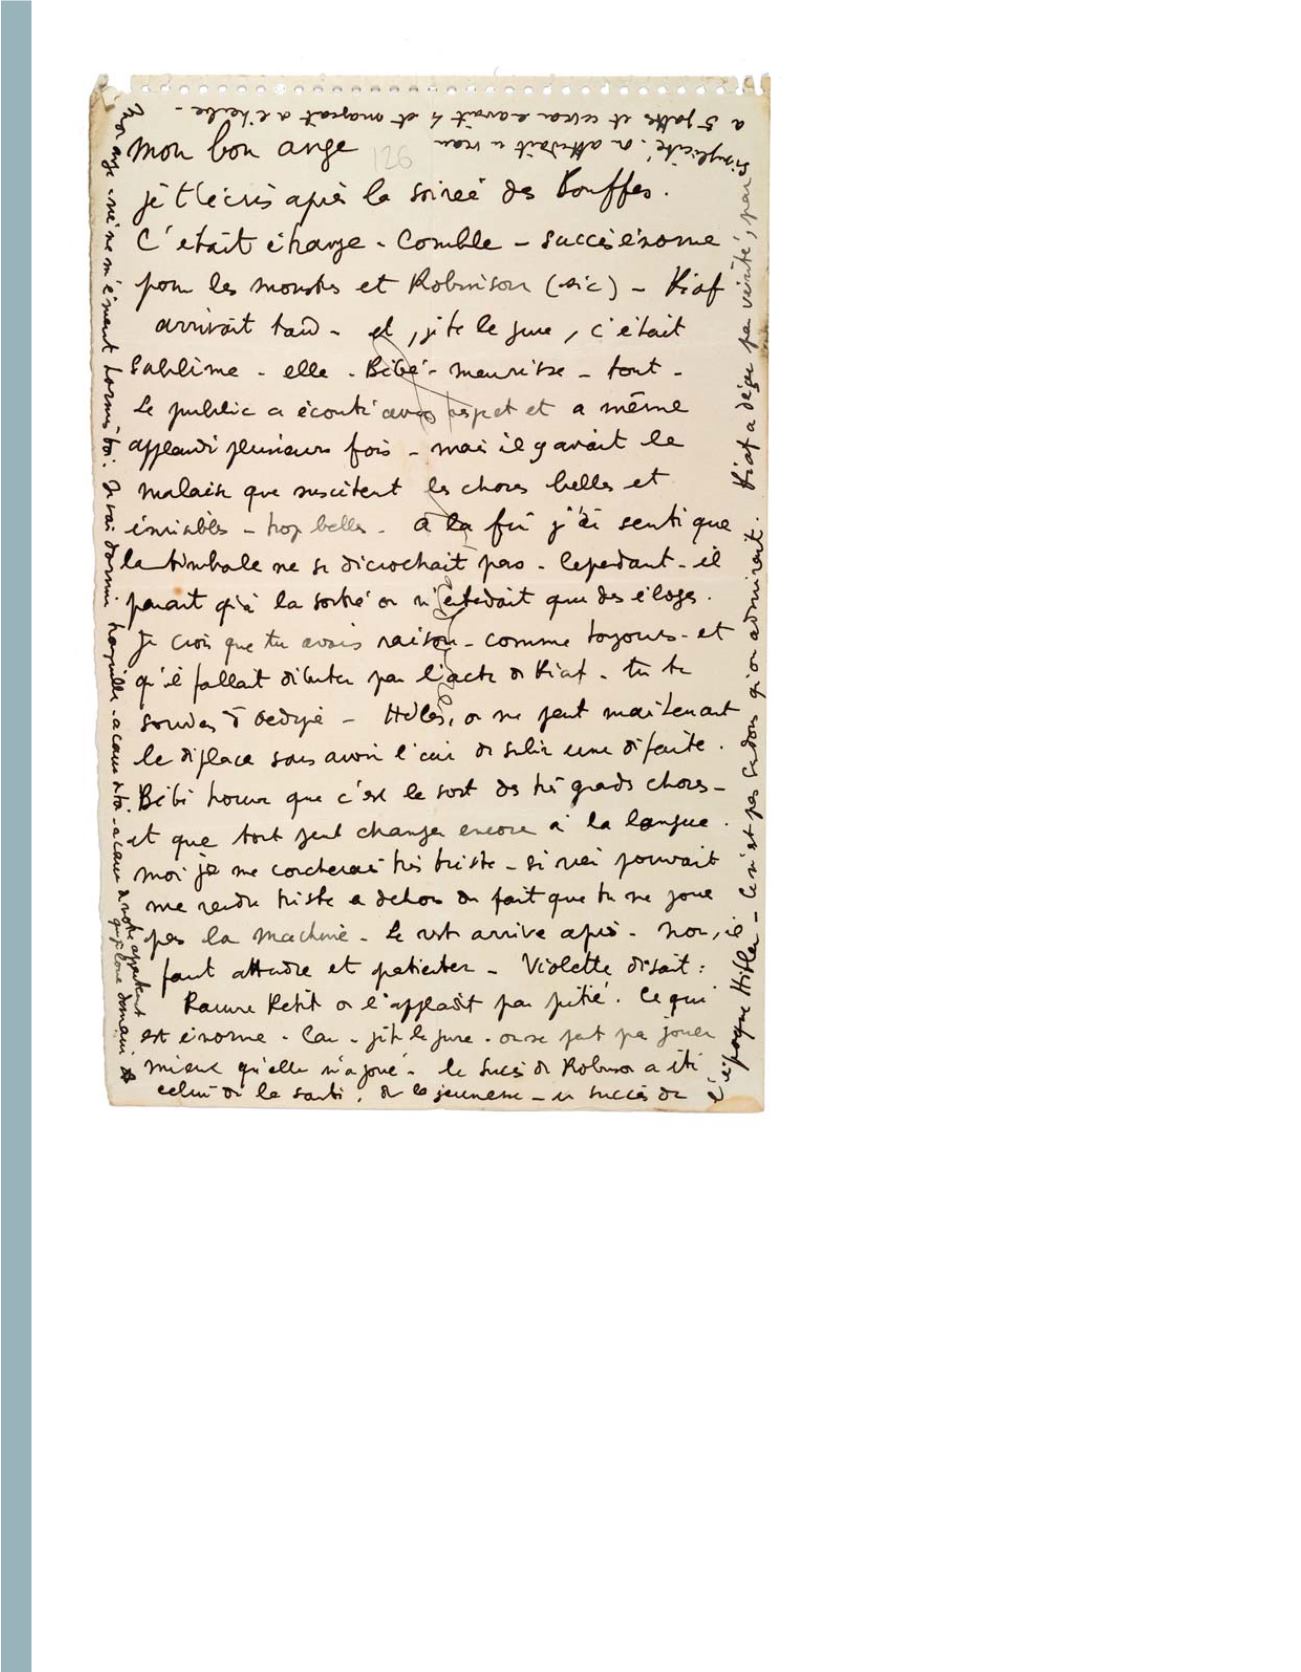 mon bon ange
126
je t'écris après la soirée des Bouffes.
C'était étrange - Comble - succès énorme
pour les monstres et Robinson (sic) - Piaf
arrivait tard - et, je te le jure, c'était
sublime - elle - Bébé - meurisse - tout -
Le public a écouté avec respect et a même
applaudi plusieurs fois - mais il y avait le
malaise que suscitent les choses belles et
invisibles - trop belles - à la fin j'ai senti que
la timbale ne se décrochait pas - Cependant - il
parait qu'à la sortie on n'entendait que des éloges.
Je crois que tu avais raison - comme toujours - et
qu'il fallait débuter par l'acte de Piaf - tu te
souviens d'Oedipe - Hélas, on ne peut maintenant
le déplacer sans avoir l'air de subir une défaite.
Bébé trouve que c'est le sort des très grandes choses -
et que tout peut changer encore à la longue.
moi je me coucherais très triste - si rien pouvait
me rendre triste en dehors du fait que tu ne joues
pas la machine - Le reste arrive après - Non, il
faut attendre et patienter - Violette disait :
Pauvre Petit on l'applaudit par pitié. Ce qui
est énorme - Car - je te le jure - on ne peut pas jouer
mieux qu'elle n'a joué - le succès de Robinson a été
celui de la santé, de la jeunesse - un succès de
l'époque Hitler - Ce n'est pas Sardou qu'on admirait. Piaf a déçu par vérité, par
simplicité. on attendait un veau
à 5 pattes et ce veau en avait 4 et mangeait de l'herbe -
Mon ange rien ne m'émeut hormis toi. Je vais dormir tranquille - à cause de toi - à cause de notre appartement
que je loue demain